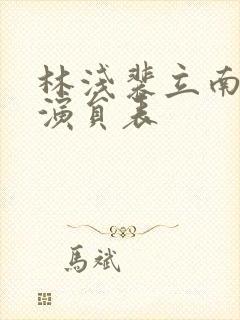 林浅裴立南
演員表
馬斌